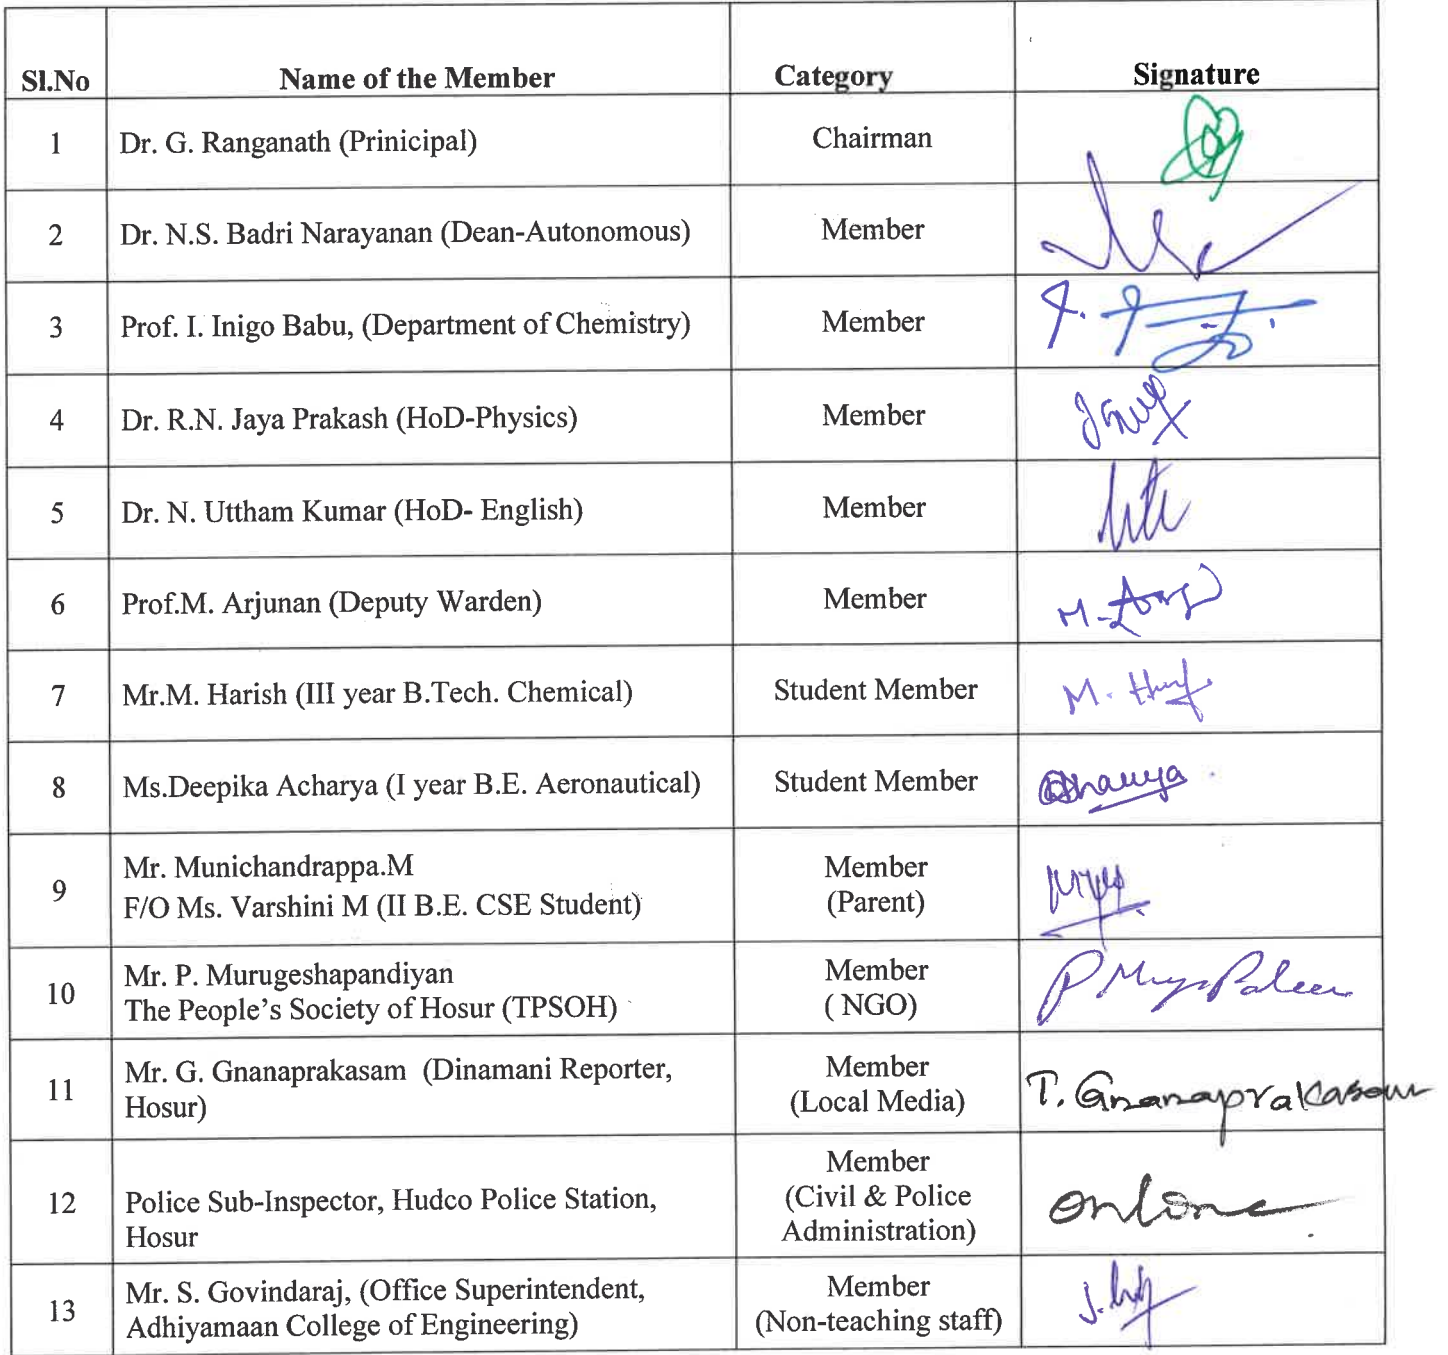 Sl.No Name of the Member Category Signature
1 Dr. G. Ranganath (Prinicipal) Chairman
2 Dr. N.S. Badri Narayanan (Dean-Autonomous) Member
3 Prof. I. Inigo Babu, (Department of Chemistry) Member
4 Dr. R.N. Jaya Prakash (HoD-Physics) Member
5 Dr. N. Uttham Kumar (HoD- English) Member
6 Prof.M. Arjunan (Deputy Warden) Member
7 Mr.M. Harish (III year B.Tech. Chemical) Student Member
8 Ms.Deepika Acharya (I year B.E. Aeronautical) Student Member
9 Mr. Munichandrappa.M
F/O Ms. Varshini M (II B.E. CSE Student)
Member
(Parent)
10 Mr. P. Murugeshapandiyan
The People's Society of Hosur (TPSOH)
Member
( NGO)
11 Mr. G. Gnanaprakasam (Dinamani Reporter,
Hosur)
Member
(Local Media)
T. Gnanaprakasam
12 Police Sub-Inspector, Hudco Police Station,
Hosur
Member
(Civil & Police
Administration)
online
13 Mr. S. Govindaraj, (Office Superintendent,
Adhiyamaan College of Engineering)
Member
(Non-teaching staff)